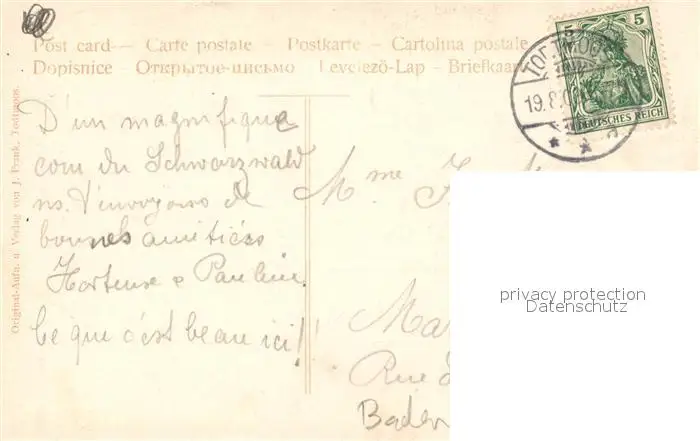 Post card — Carte postale — Postkarte — Cartolina postale
Dopisnice — Открытое письмо Levelezö-Lap — Briefkaart
5 5
TODTMOOS
19.8.0
DEUTSCHES REICH
Original-Aufn. u Verlag von J. Frank, Todtmoos.
D'un magnifique
coin du Schwarzwald
ns. t'envoyons de
bonnes amitiés
Hortense & Pauline
Ce que c'est beau ici!
Mme
Ma
Rue d
Baden
privacy protection
Datenschutz